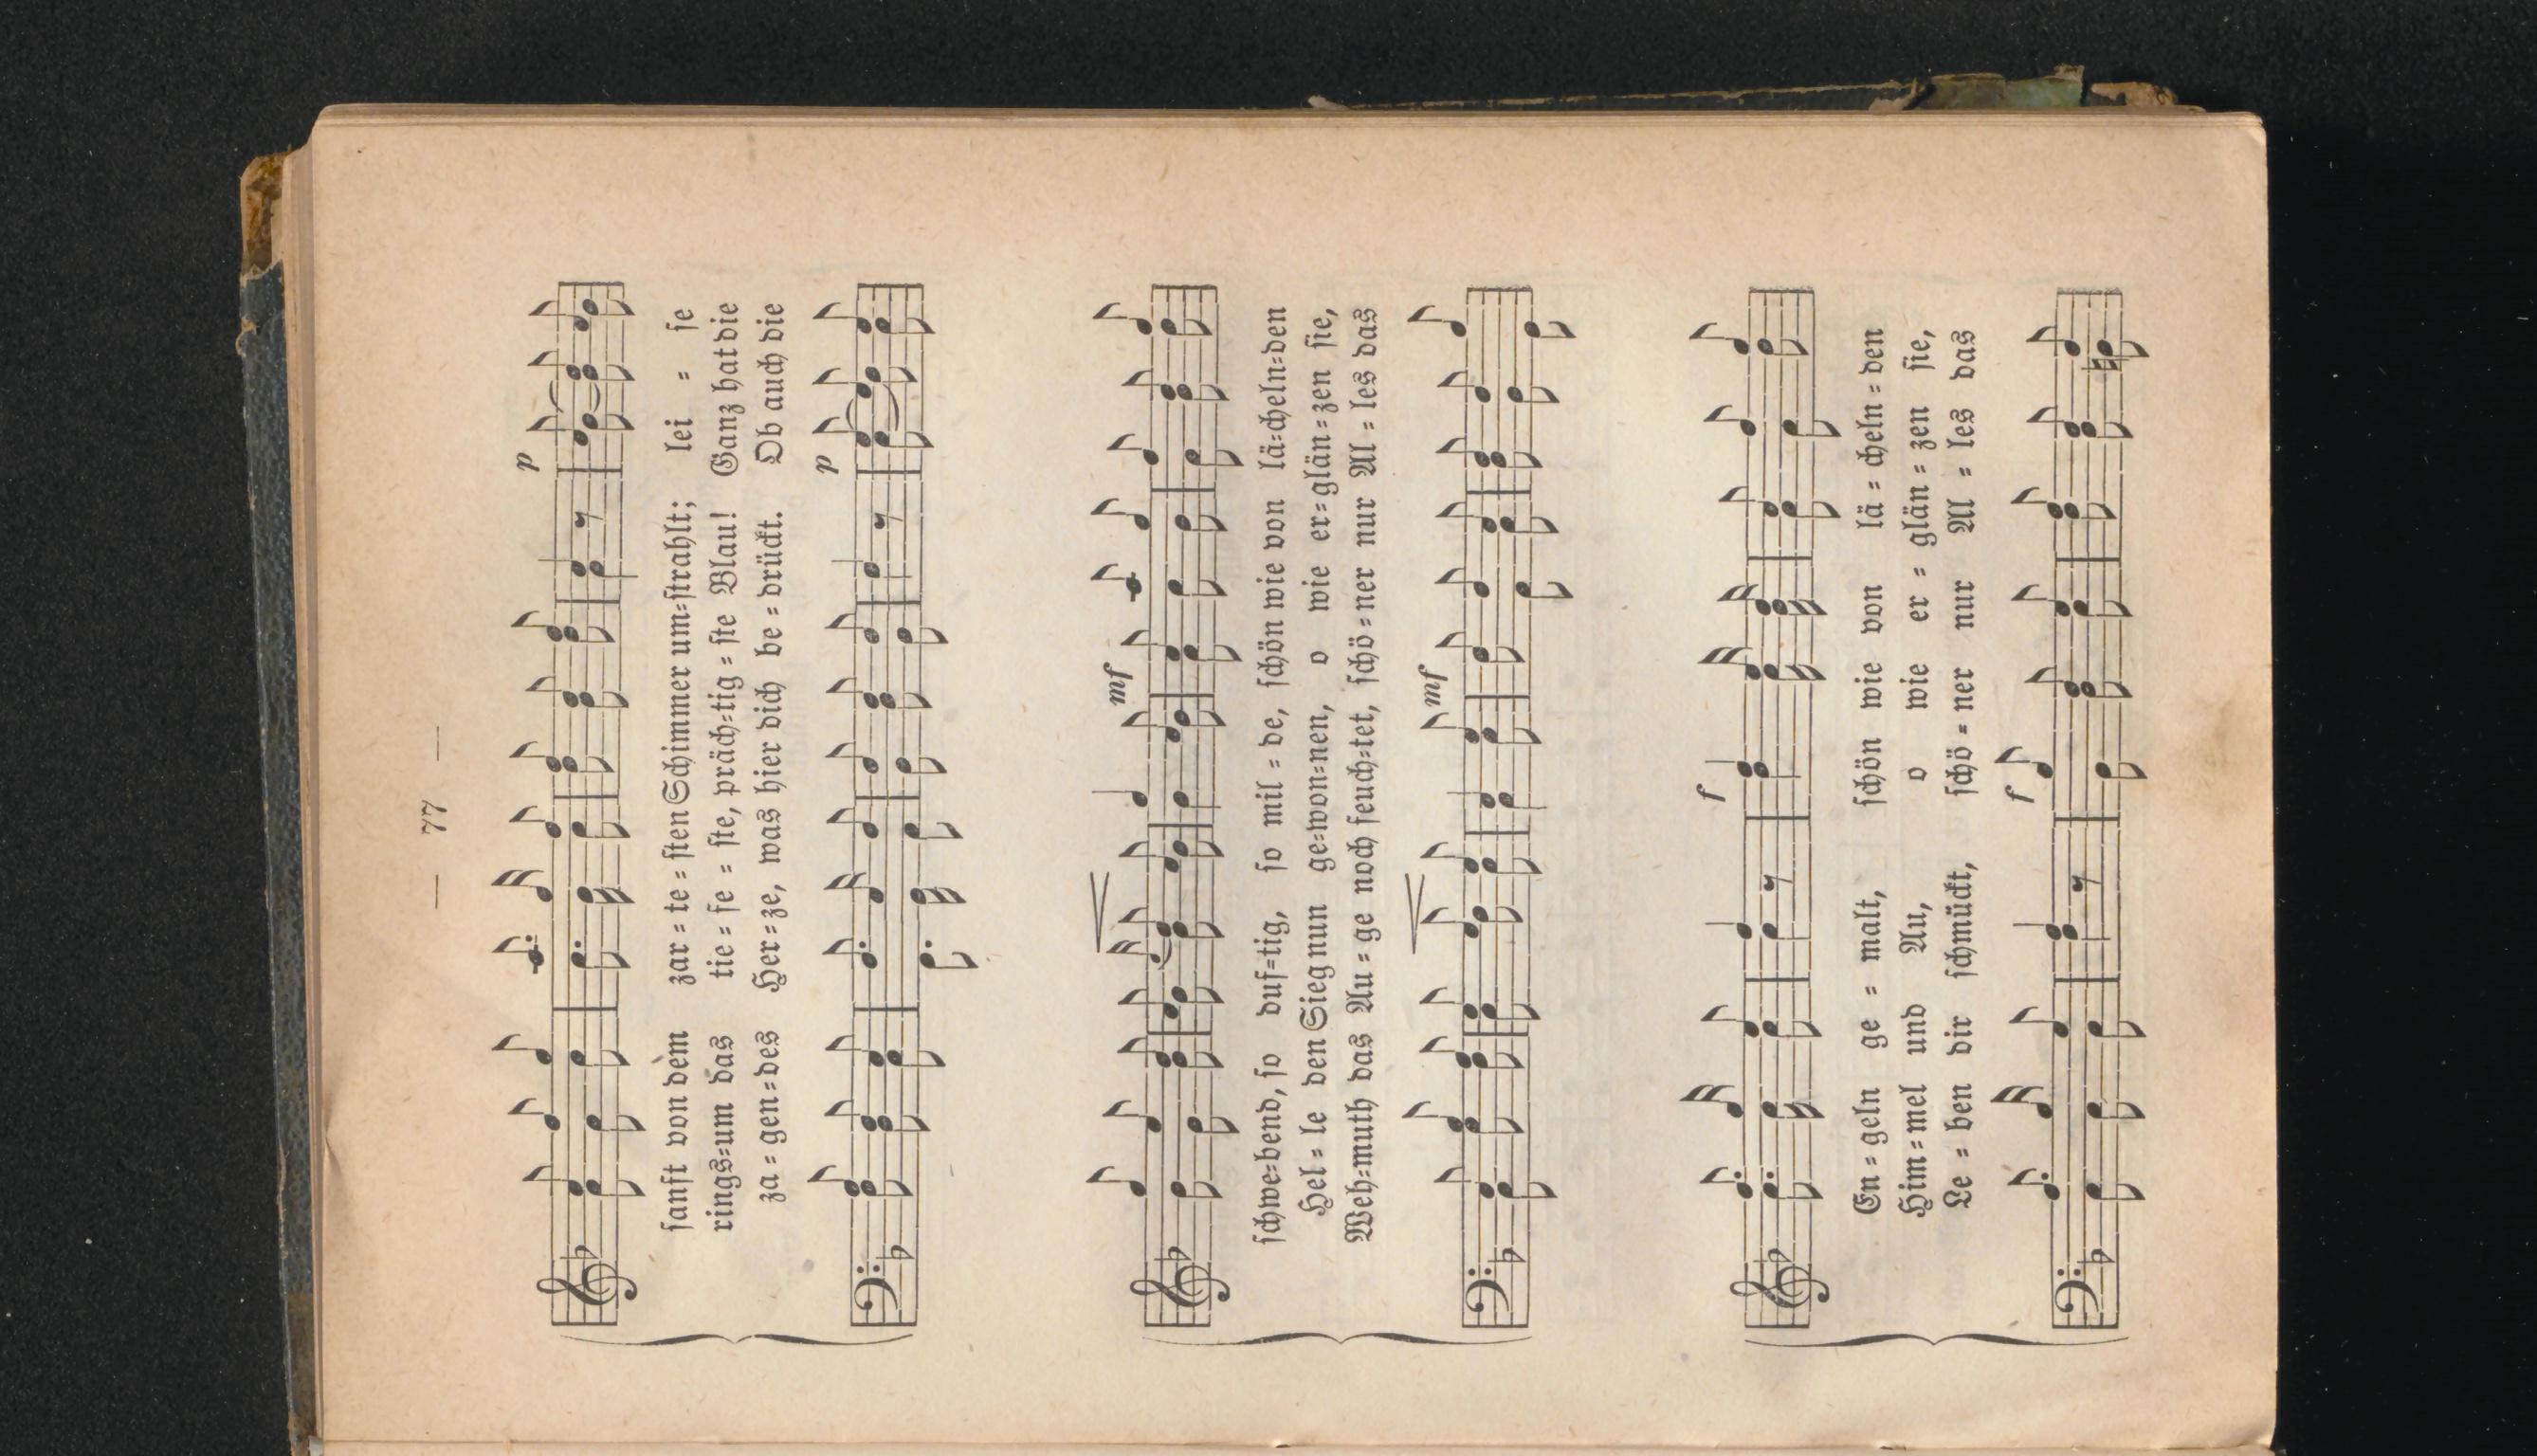 — 77 —
p
sanft von dem zar = te = sten Schimmer um=strahlt; lei = se
rings=um das tie = fe = ste, präch=tig = ste Blau! Ganz hat die
za = gen=des Her=ze, was hier dich be = drückt. Ob auch die
p
mf
schwe=bend, so duf=tig, so mil = de, schön wie von lä=cheln=den
Hel = le den Sieg nun ge=won=nen, o wie er=glän=zen sie,
Weh=muth das Au = ge noch feuch=tet, schö=ner nur Al = les das
mf
f
En = geln ge = malt, schön wie von lä = cheln = den
Him=mel und Au, o wie er = glän = zen sie,
Le = ben dir schmückt, schö = ner nur Al = les das
f